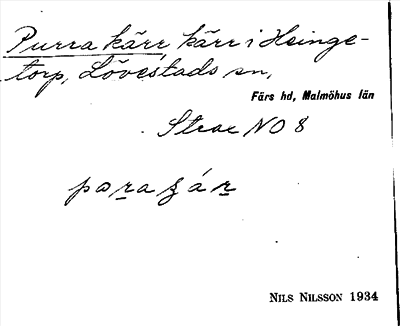 Purra kärr, kärr i Heinge-
torp, Lövestads sn,
Färs hd, Malmöhus län
Strax NO 8
NILS NILSSON 1934